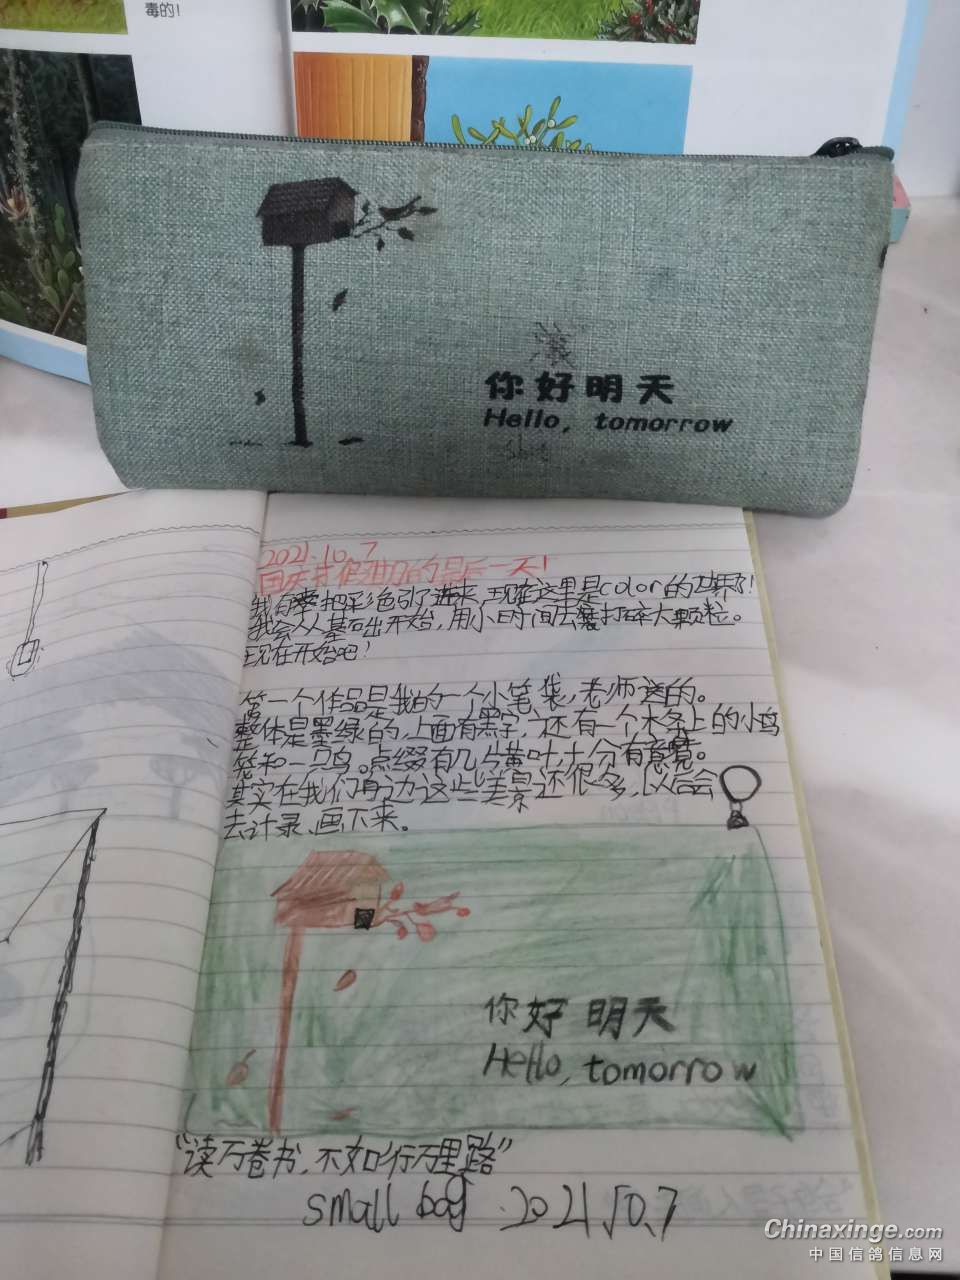 毒的!
你好明天
Hello, tomorrow
2021.10.7
国庆节假期的最后一天!
我有幸把彩色引了进来,现在这里是color的世界了!
我会从基础出开始,用小时间去打碎大颗粒。
现在开始吧!
第一个作品是我的一个小笔袋,老师送的。
整体是墨绿的,上面有黑字,还有一个木条上的小鸟
笼和一只鸟。点缀有几片黄叶,十分有意境。
其实在我们身边这些美景还很多,以后会
去计录、画下来。
你好 明天
Hello, tomorrow
“读万卷书,不如行万里路”
small bog 2021.10.7
Chinaxinge.com
中国信鸽信息网